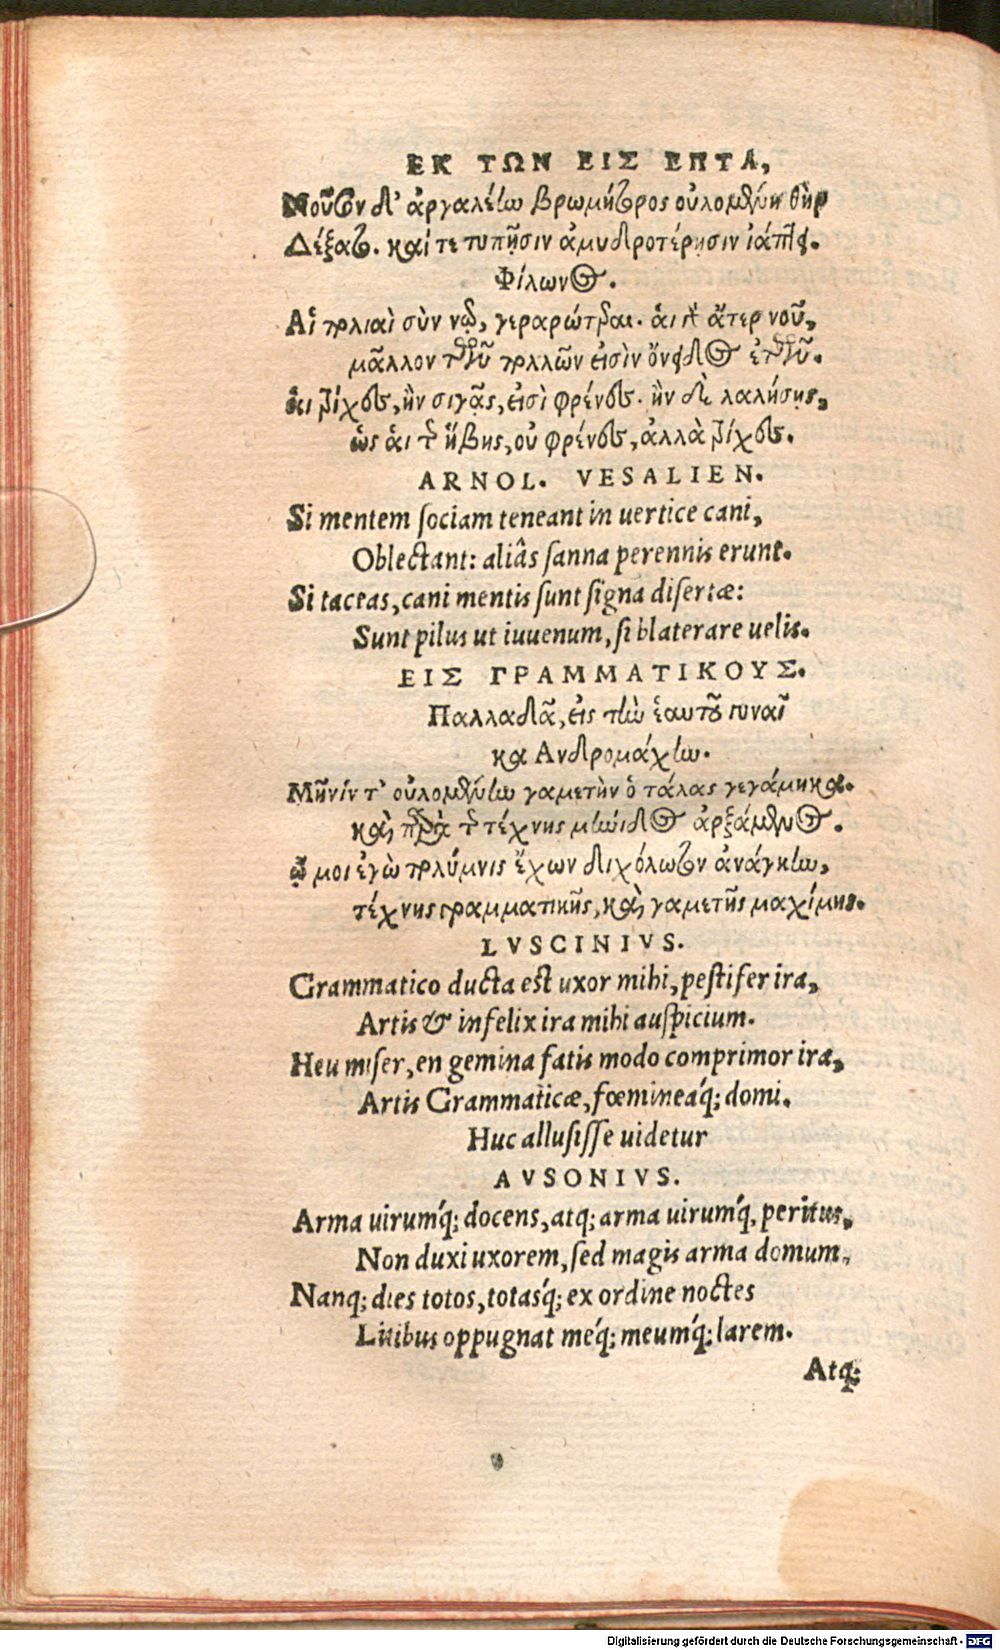 ΕΚ ΤΩΝ ΕΙΣ ΕΠΤΑ,
Νοῦσον δ' ἀργαλέην βρωμήτορος οὐλομένη θὴρ
Δέξατο. καί τε τυπῇσιν ἀμυδροτέρῃσιν ἰάπτει.
Φίλωνος.
Αἱ τρίχαὶ σὺν νῷ, γεραρώτεραι. αἱ δ' ἄτερ νοῦ,
μᾶλλον τῶν πολλῶν εἰσὶν ὄνειδος ἐτῶν.
αἱ τρίχες, ἢν σιγᾷς, εἰσὶ φρένες. ἢν δὲ λαλήσῃς,
ὡς αἱ τῆς ἥβης, οὐ φρένες, ἀλλὰ τρίχες.
ARNOL. VESALIEN.
Si mentem sociam teneant in uertice cani,
Oblectant: aliâs sanna perennis erunt.
Si taceas, cani mentis sunt signa disertæ:
Sunt pilus ut iuuenum, si blaterare uelis.
ΕΙΣ ΓΡΑΜΜΑΤΙΚΟΥΣ.
Παλλαδᾶ, εἰς τὴν ἑαυτοῦ γυναῖ
κα Ανδρομάχην.
Μῆνιν τ' οὐλομένην γαμετὴν ὁ τάλας γεγάμηκα.
καὶ παρὰ τῆς τέχνης μήνιδος ἀρξάμενος.
ᾤ μοι ἐγὼ πολύμηνις ἔχων διχόλωτον ἀνάγκην,
τέχνης γραμματικῆς, καὶ γαμετῆς μαχίμης.
LVSCINIVS.
Grammatico ducta est uxor mihi, pestifer ira,
Artis & infelix ira mihi auspicium.
Heu miser, en gemina fatis modo comprimor ira,
Artis Grammaticæ, fœmineáq; domi.
Huc allusisse uidetur
AVSONIVS.
Arma uirumq́; docens, atq; arma uirumq́, peritus,
Non duxi uxorem, sed magis arma domum,
Nanq; dies totos, totasq́; ex ordine noctes
Litibus oppugnat meq́; meumq́; larem.
Atq;
Digitalisierung gefördert durch die Deutsche Forschungsgemeinschaft - DFG